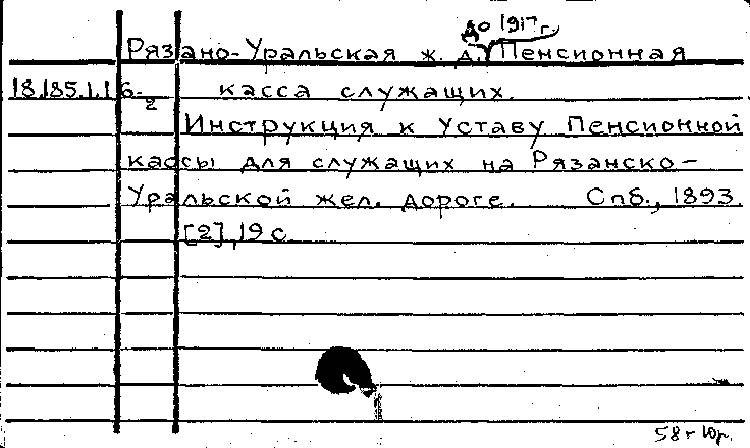 до 1917 г.
Рязано-Уральская ж. д. Пенсионная
18.185.1.16-2 касса служащих.
Инструкция к Уставу Пенсионной
кассы для служащих на Рязанско-
Уральской жел. дороге. Спб., 1893.
[2], 19 с
58 г